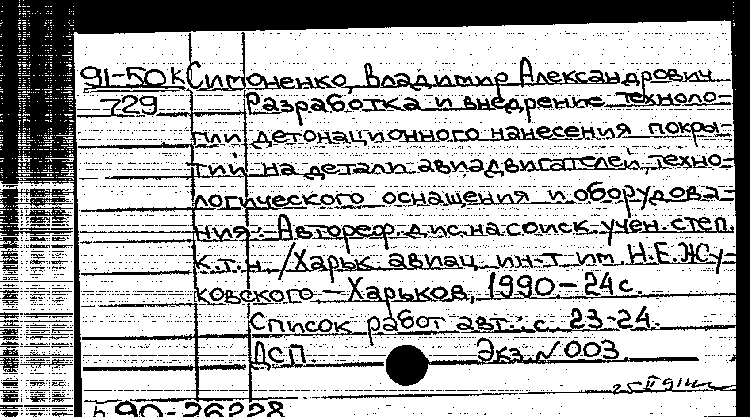 91-50к Симоненко, Владимир Александрович
729 Разработка и внедрение техноло=
гии детонационного нанесения покры=
тий на детали авиадвигателей, техно=
логического оснащения и оборудова=
ния: Автореф. дис. на соиск. учен. степ.
к.т.н. / Харьк. авиац. ин-т им. Н.Е.Жу=
ковского. – Харьков, 1990. – 24 с.
Список работ авт.: с. 23-24.
ДСП. Экз. N 003
25 II 91
90-26228